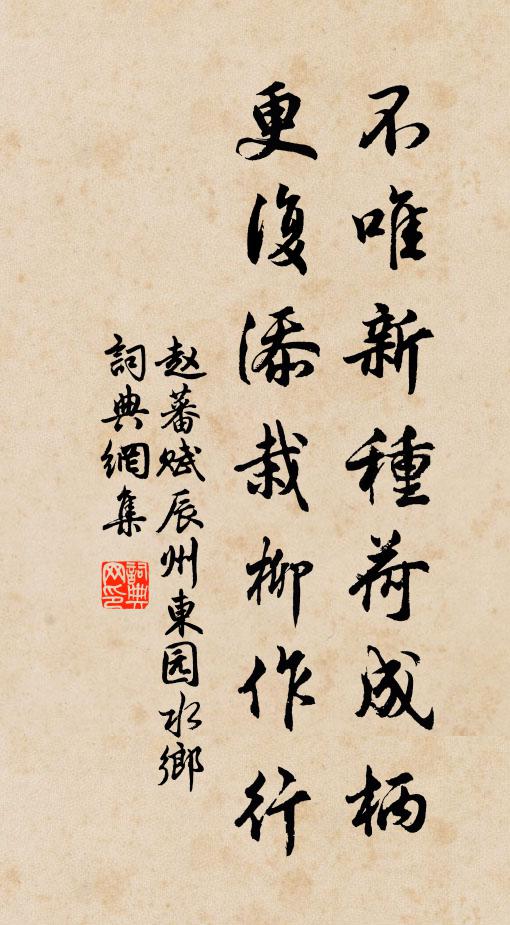 不唯新種荷成柄
更復添栽柳作行
赵蕃赋辰州東园水鄉
詞典網集
詞典
网印